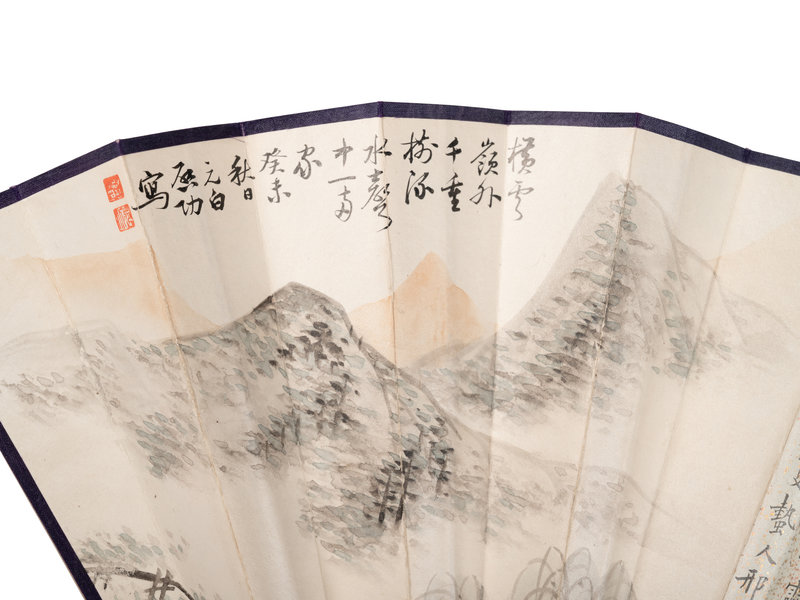 橫雲
嶺外
千重
樹流
水聲
中一兩
家
癸未
秋日
元白
启功
寫
人邪